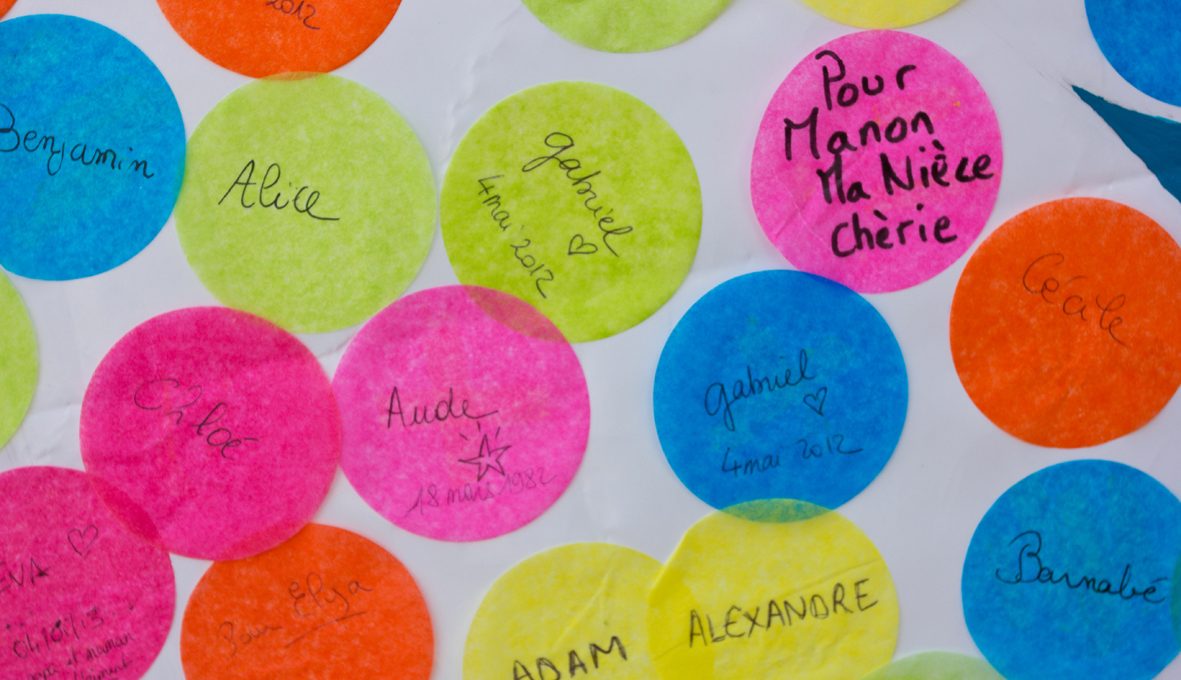 2012
Benjamin
Alice
gabriel
4 mai 2012
Pour
Manon
Ma Nièce
Chèrie
Cécile
Chloé
Aude
18 mars 1982
gabriel
4 mai 2012
Barnabé
ALEXANDRE
ADAM
Pour Elya
EVA
et maman